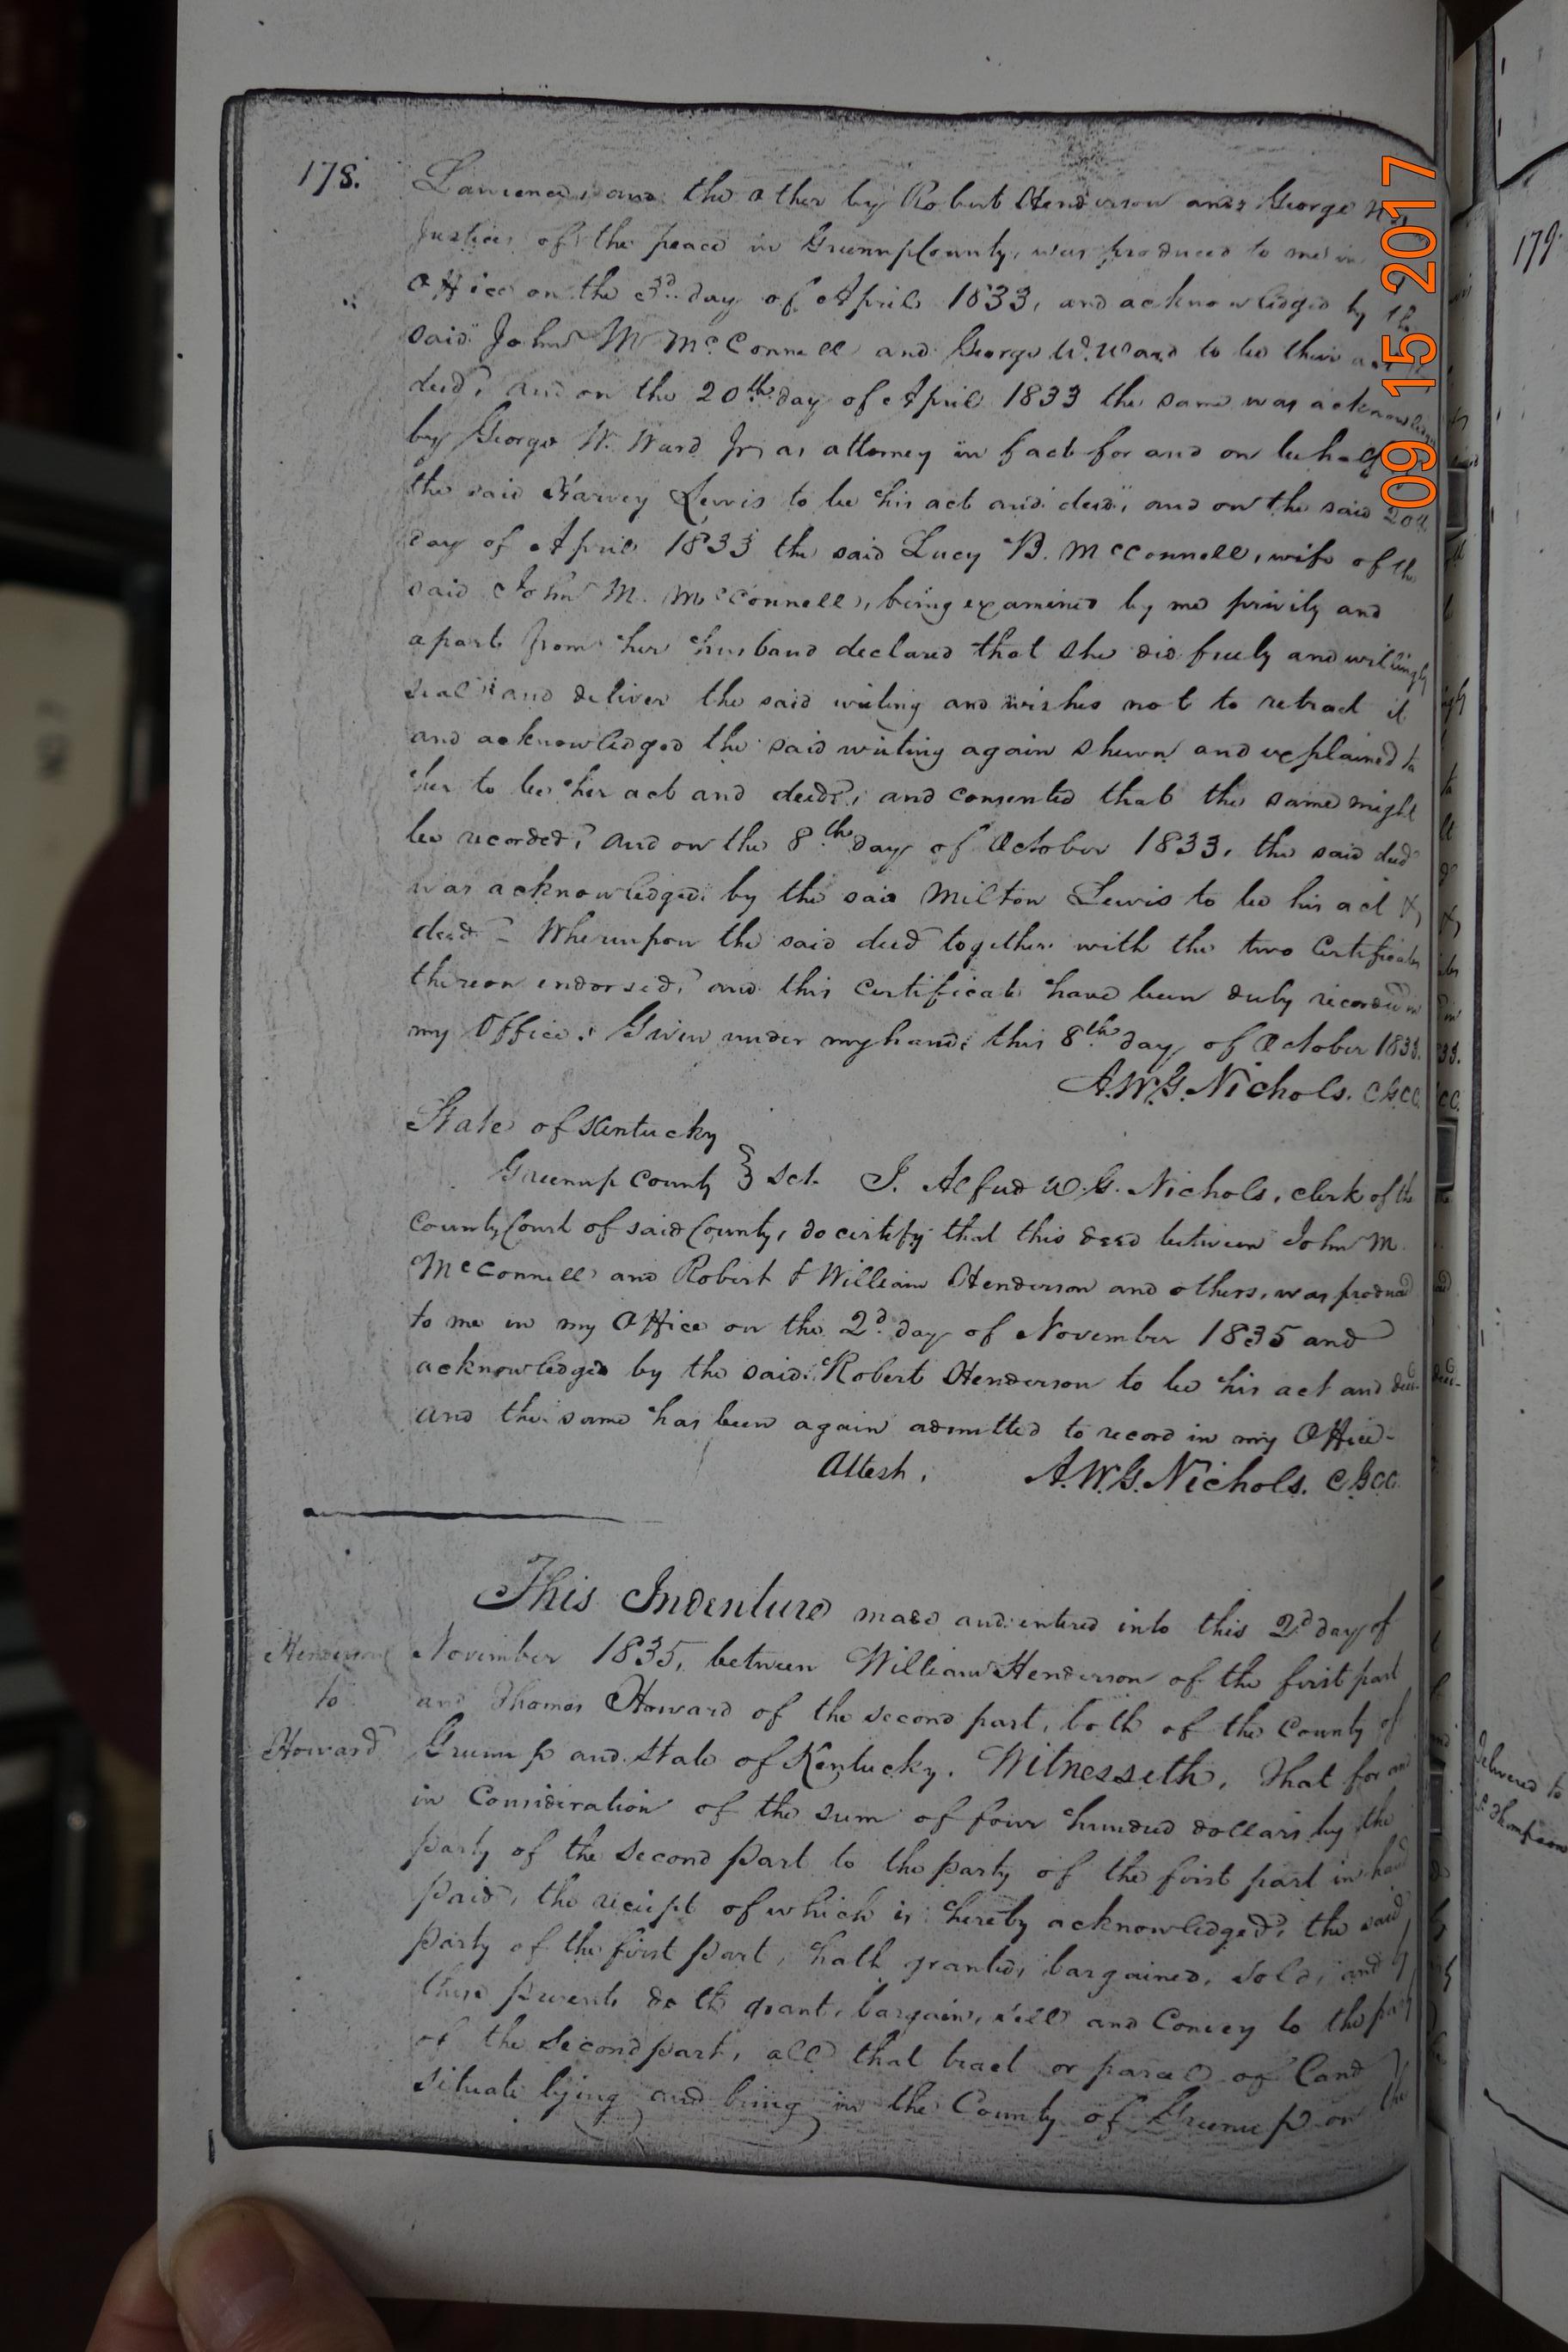 178.
Lawrence, and the other by Robert Henderson and George
Justices of the peace in Greenup County, was produced to me in
Office on the 3d. day of April 1833, and acknowledged by the
said John M McConnell and George W. Ward to be their act
deed, and on the 20th day of April 1833 the same was acknowledged
by George W. Ward Jr, as attorney in fact for and on behalf
the said Harvey Lewis to be his act and deed, and on the said 20th
day of April 1833 the said Lucy B. McConnell, wife of the
said John M. McConnell, being examined by me privily and
apart from her husband declared that she did freely and willingly
seal and deliver the said writing and wishes not to retract it
and acknowledged the said writing again shewn and explained to
her to be her act and deed, and consented that the same might
be recorded, and on the 8th day of October 1833, the said deed
was acknowledged by the said Milton Lewis to be his act &
deed - Whereupon the said deed together with the two Certificates
thereon endorsed, and this Certificate have been duly recorded in
my Office. Given under my hand this 8th day of October 1833.
A.W.G. Nichols. CGCC.
State of Kentucky
Greenup County } Sct. I. Alfred W.G. Nichols, clerk of the
County Court of said County, do certify that this deed between John M.
McConnell and Robert & William Henderson and others, was produced
to me in my Office on the 2d. day of November 1835 and
acknowledged by the said Robert Henderson to be his act and deed-
and the same has been again admitted to record in my Office-
Attest, A.W.G. Nichols. CGCC
This Indenture made and entered into this 2d day of
Henderson
to
Howard
November 1835, between William Henderson of the first part
and Thomas Howard of the second part, both of the County of
Greenup and State of Kentucky. Witnesseth, That for and
in Consideration of the sum of four hundred dollars by the
party of the Second part to the party of the first part in hand
paid, the receipt of which is hereby acknowledged, the said
Party of the first part, hath granted, bargained, sold, and by
these presents doth grant, bargain, sell and Convey to the party
of the Second part, all that tract or parcel of Land
situate lying and being in the County of Greenup on the
09 15 2017
179.
Delivered to
Thompson